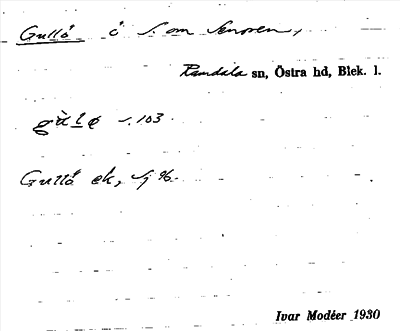 Gullö ö S. om Senoren,
Ramdala sn, Östra hd, Blek. l.
s. 103.
Gullö ek,
Ivar Modéer 1930